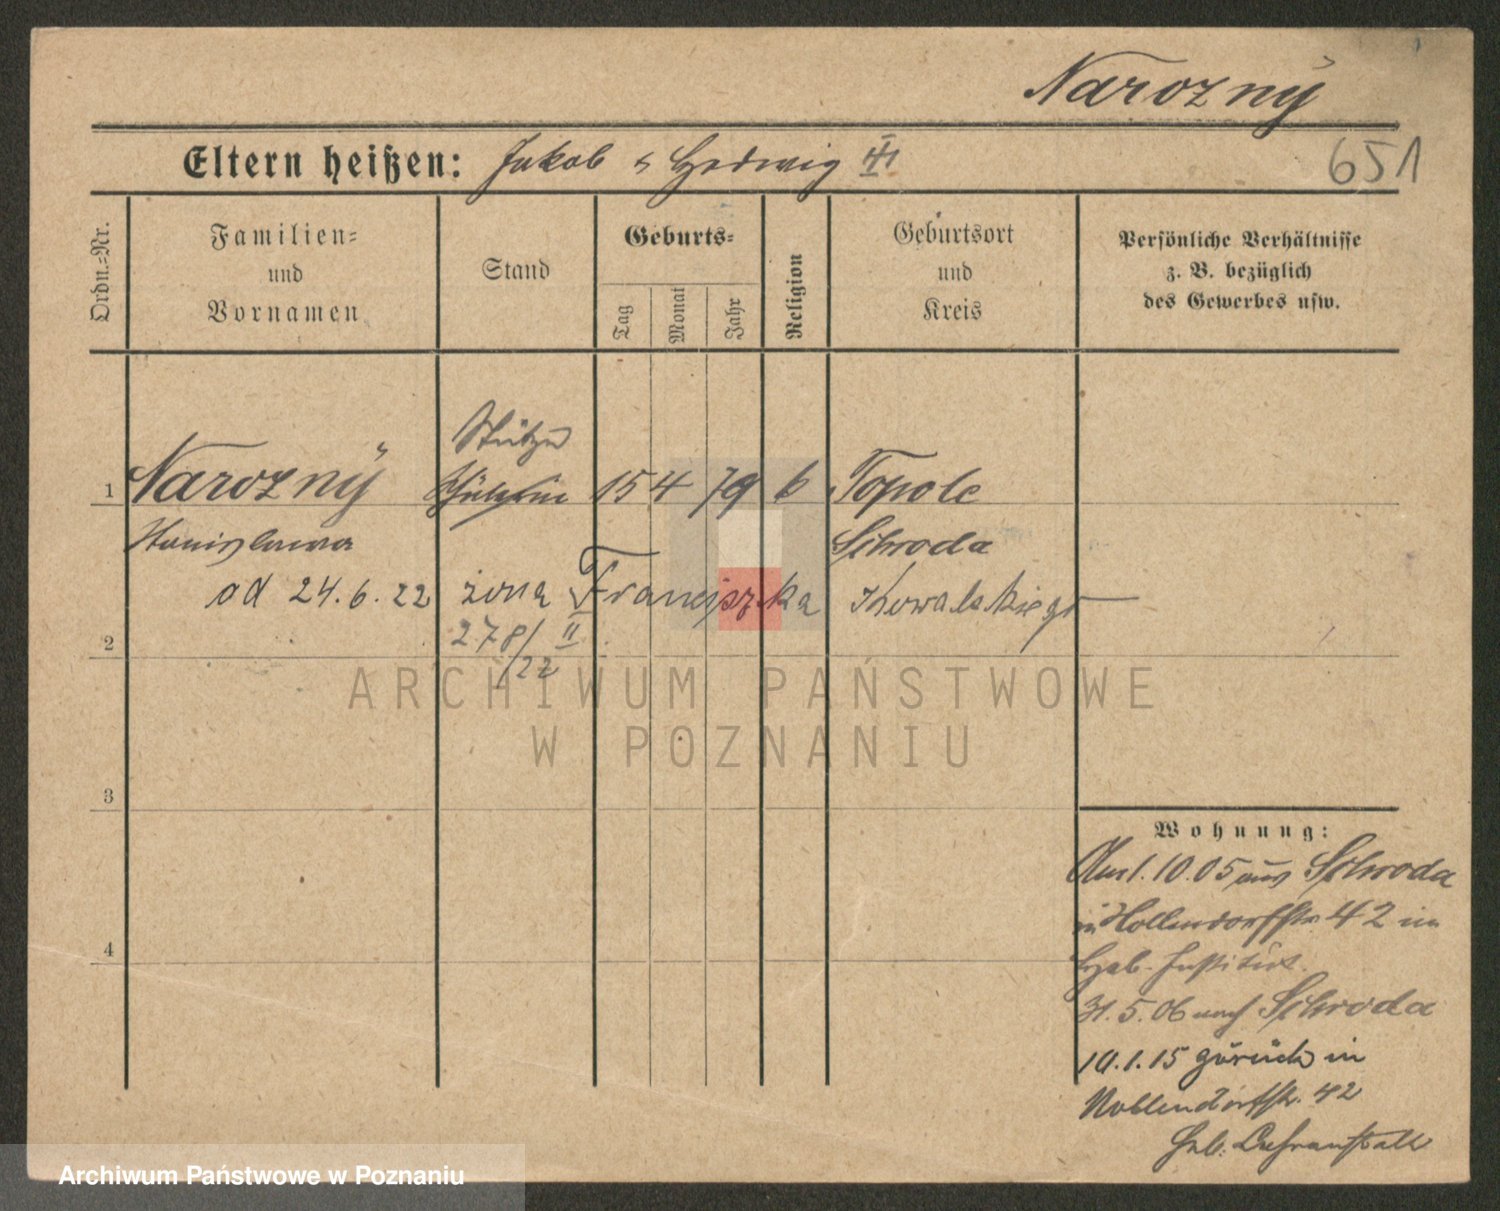 Narozny
Eltern heißen: Jakob u Hedwig
651
Ordn.-Nr.
Familien-
und
Vornamen
Stand
Geburts-
Tag
Monat
Jahr
Religion
Geburtsort
und
Kreis
Persönliche Verhältnisse
z. B. bezüglich
des Gewerbes usw.
Stütze
1 Narozny 15 4 79 Topole
Stanislawa Schroda
od 24.6.22 żona Franciszka Kowalskiego
278/II
/22
2
3
4
Wohnung:
Am 1.10.05 aus Schroda
in Nollendorfstr 42 im
Heb. Institut.
31.5.06 nach Schroda
10.1.15 zurück in
Nollendorfstr. 42
Heb. Lehranstalt
ARCHIWUM PAŃSTWOWE
W POZNANIU
Archiwum Państwowe w Poznaniu